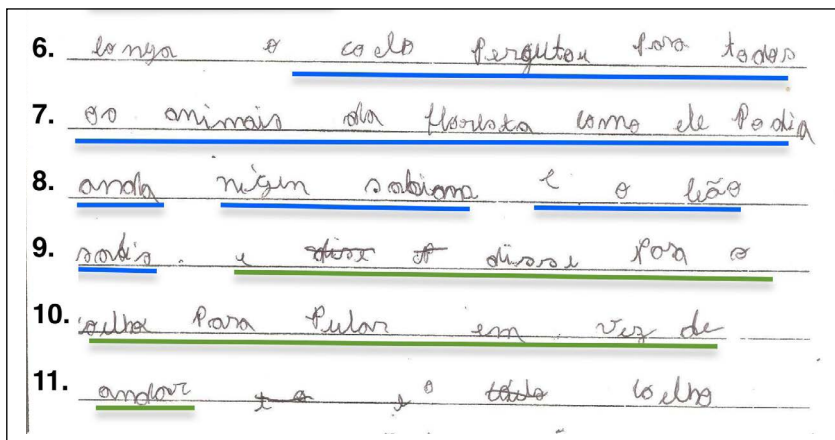 6. longa o coelo Pergutou Para todos
7. os animais da floresta como ele Podia
8. anda nigin sabiam e o leão
9. sabis. e disse disse Para o
10. coelho Para Pular em vez de
11. andar e o coelho